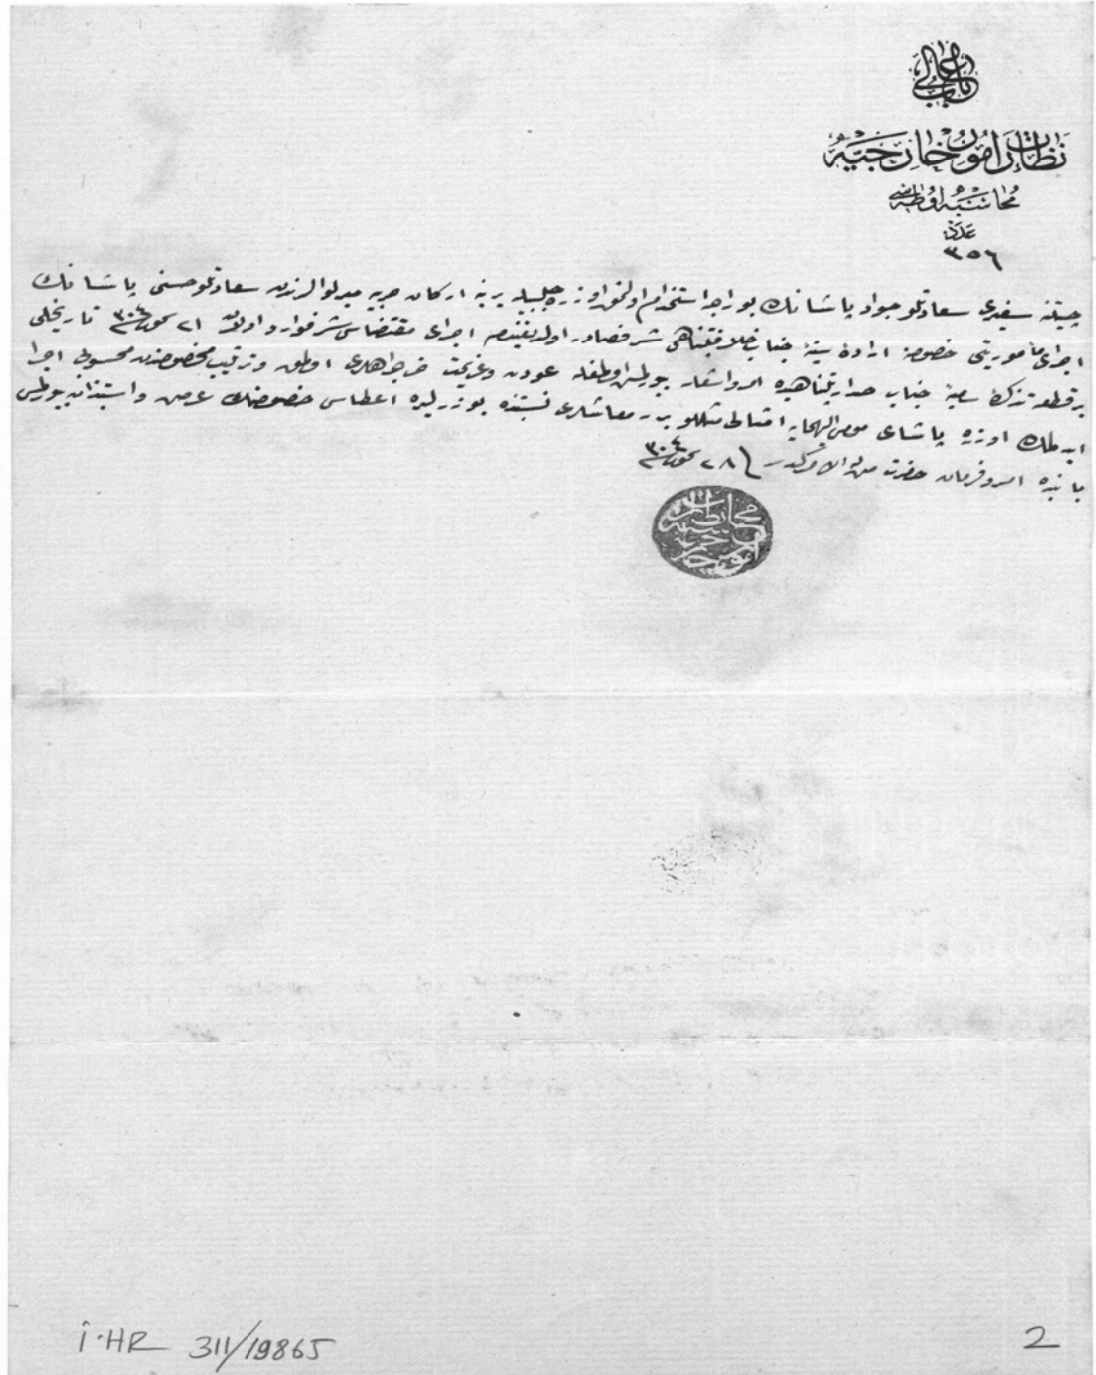 باب عالی
نظارت امور خارجیه
محاسبه اوطه سی
عدد
٣٥٦
چتینه سفیری سعادتلو جواد پاشانك بوراجه استخدام اولنمق اوزره جلبیله یرینه اركان حربیه میرلوالرندن سعادتلو حسنی پاشانك
اجرای مأموریتی خصوصنه ارادهٔ سنیهٔ جناب خلافتپناهی شرفصادر اولدیغندن اجرای مقتضاسی شرفوارد اولان ٢١ تموز ٣٠٤ تاریخلی
بر قطعه تذكرهٔ سامیهٔ جناب صدارتپناهیده امر و اشعار بیورلمش اولمغله عودت و عزیمت خرجراهلری اولمق و ترتیب مخصوصندن محسوبی اجرا
ایدلمك اوزره پاشای مومی الیهمایه امثالی مثللو برر معاشلری نسبتنده یوزر لیره اعطاسی خصوصنك عرض و استیذانی بیورلمق
بابنده امر و فرمان حضرت من له الامركدر ٢٨ تموز ٣٠٤
محاسبه امور خارجیه
İ.HR 311/19865
2